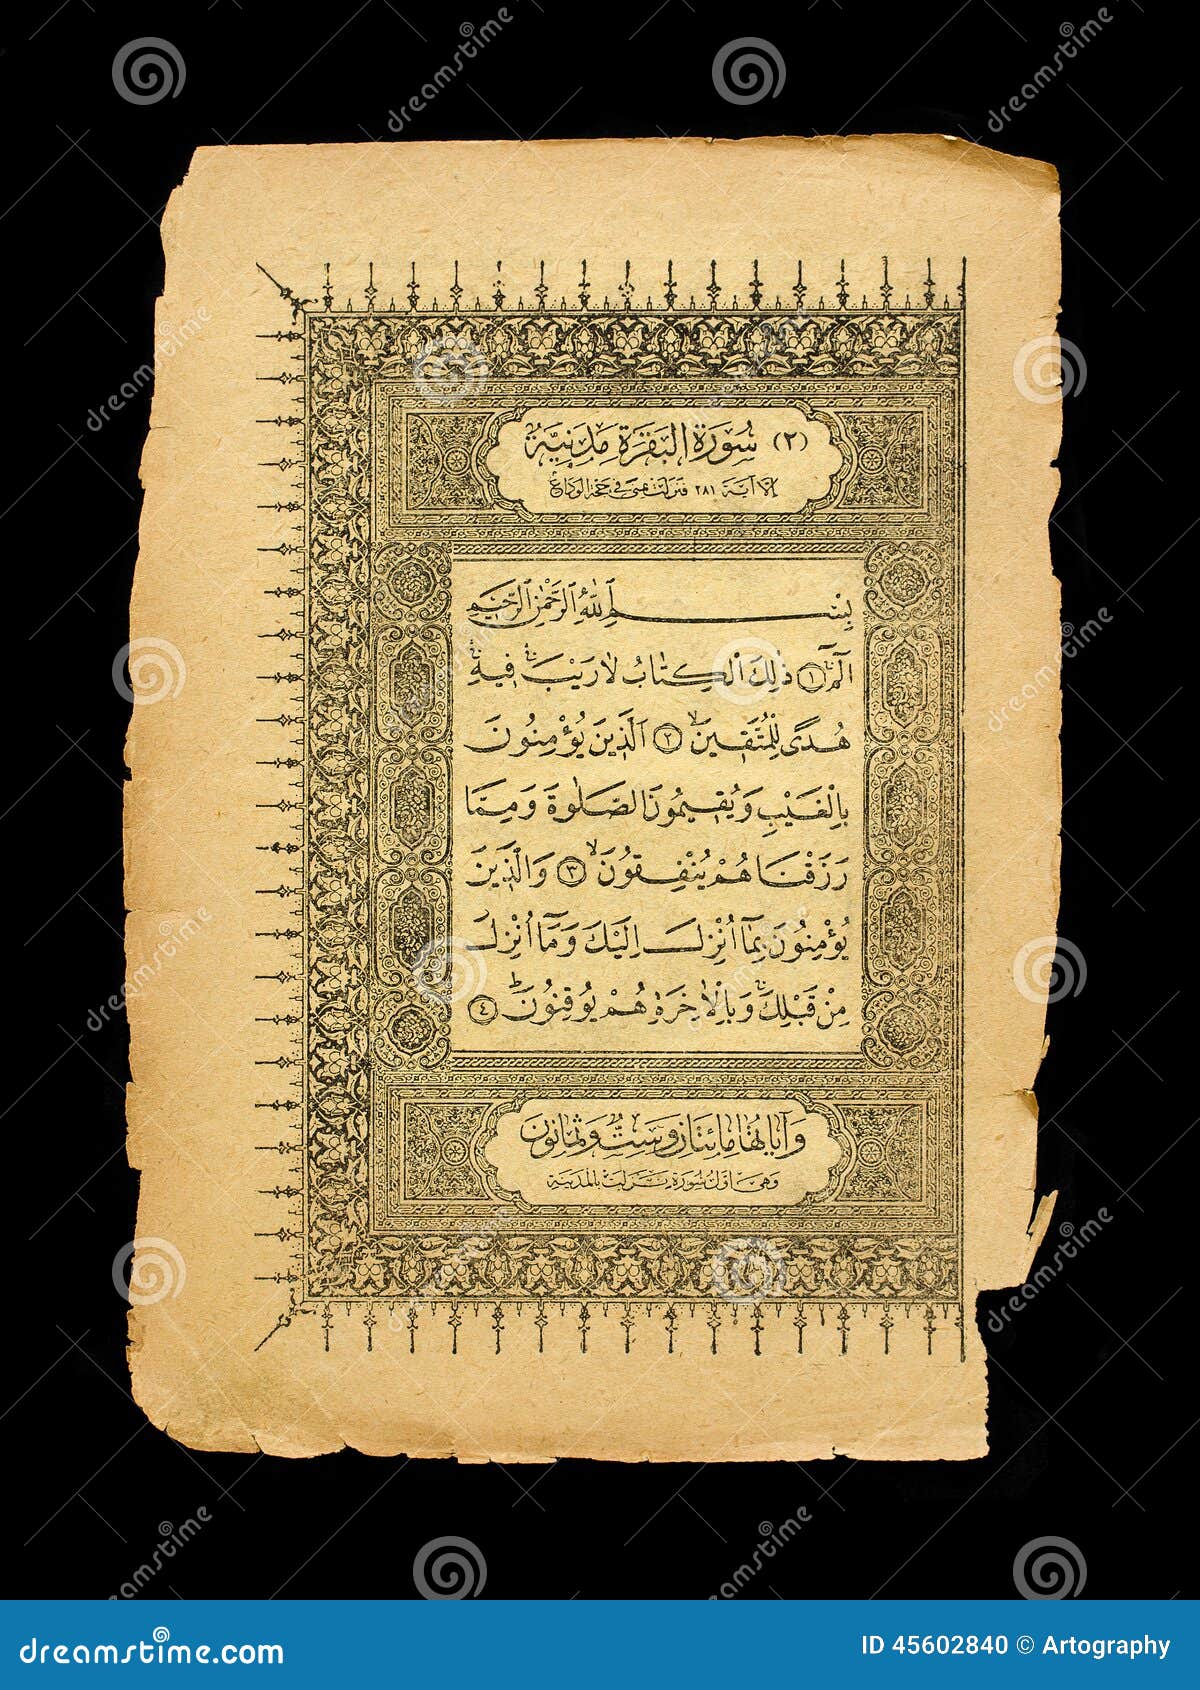 (٢) سُورَةُ البَقَرَةِ مَدَنِيَّةٌ
إلَّا آيَة ٢٨١ فنزلت بمنى في حجة الوداع
بِسْمِ ٱللَّهِ ٱلرَّحْمَٰنِ ٱلرَّحِيمِ
الٓمٓ ۚ ١ ذَٰلِكَ ٱلْكِتَابُ لَا رَيْبَ ۛ فِيهِ ۛ
هُدًى لِلْمُتَّقِينَ ۙ ٢ اَلَّذِينَ يُؤْمِنُونَ
بِالْغَيْبِ وَيُقِيمُونَ الصَّلٰوةَ وَمِمَّا
رَزَقْنَاهُمْ يُنْفِقُونَ ۙ ٣ وَالَّذِينَ
يُؤْمِنُونَ بِمَٓا اُنْزِلَ اِلَيْكَ وَمَٓا اُنْزِلَ
مِنْ قَبْلِكَ ۚ وَبِالْاٰخِرَةِ هُمْ يُوقِنُونَ ۜ ٤
وَآيَاتُهَا مِائَتَانِ وَسِتٌّ وَثَمَانُونَ
وَهِيَ أَوَّلُ سُورَةٍ نَزَلَتْ بِالمَدِينَةِ
dreamstime.com
ID 45602840 © Artography